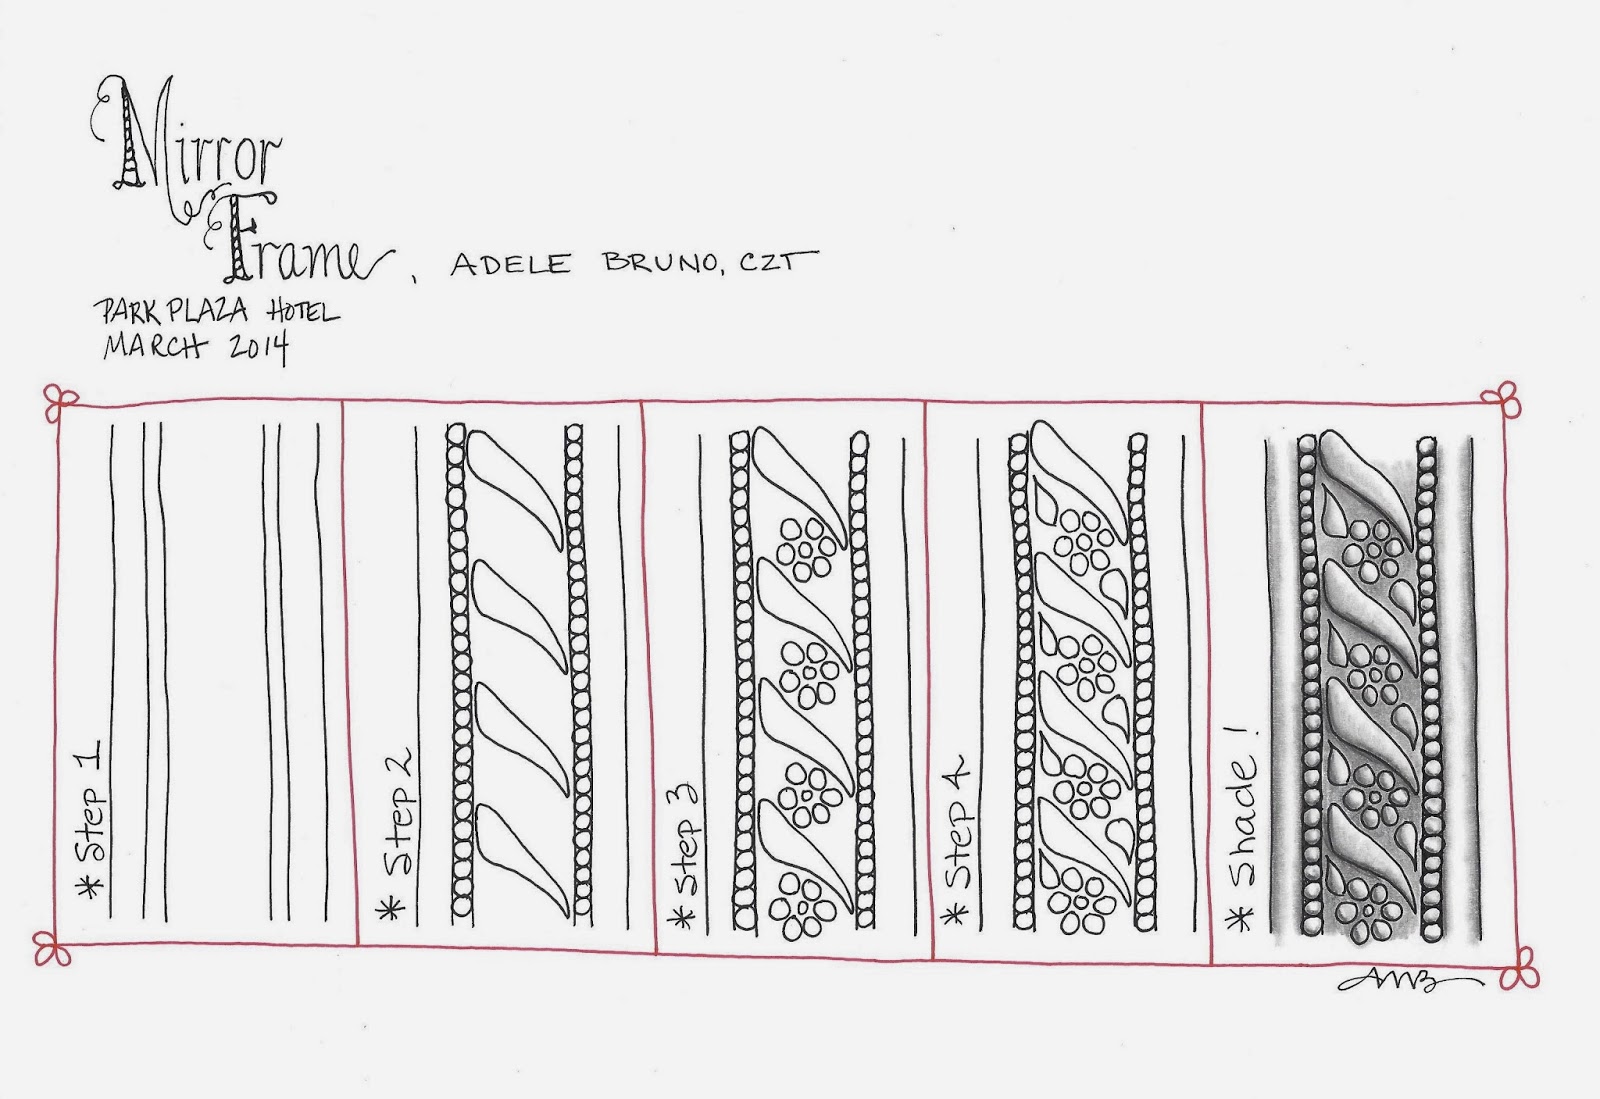 Mirror
Frame, ADELE BRUNO, CZT
PARK PLAZA HOTEL
MARCH 2014
* Step 1
* Step 2
* Step 3
* Step 4
* Shade!
AMB